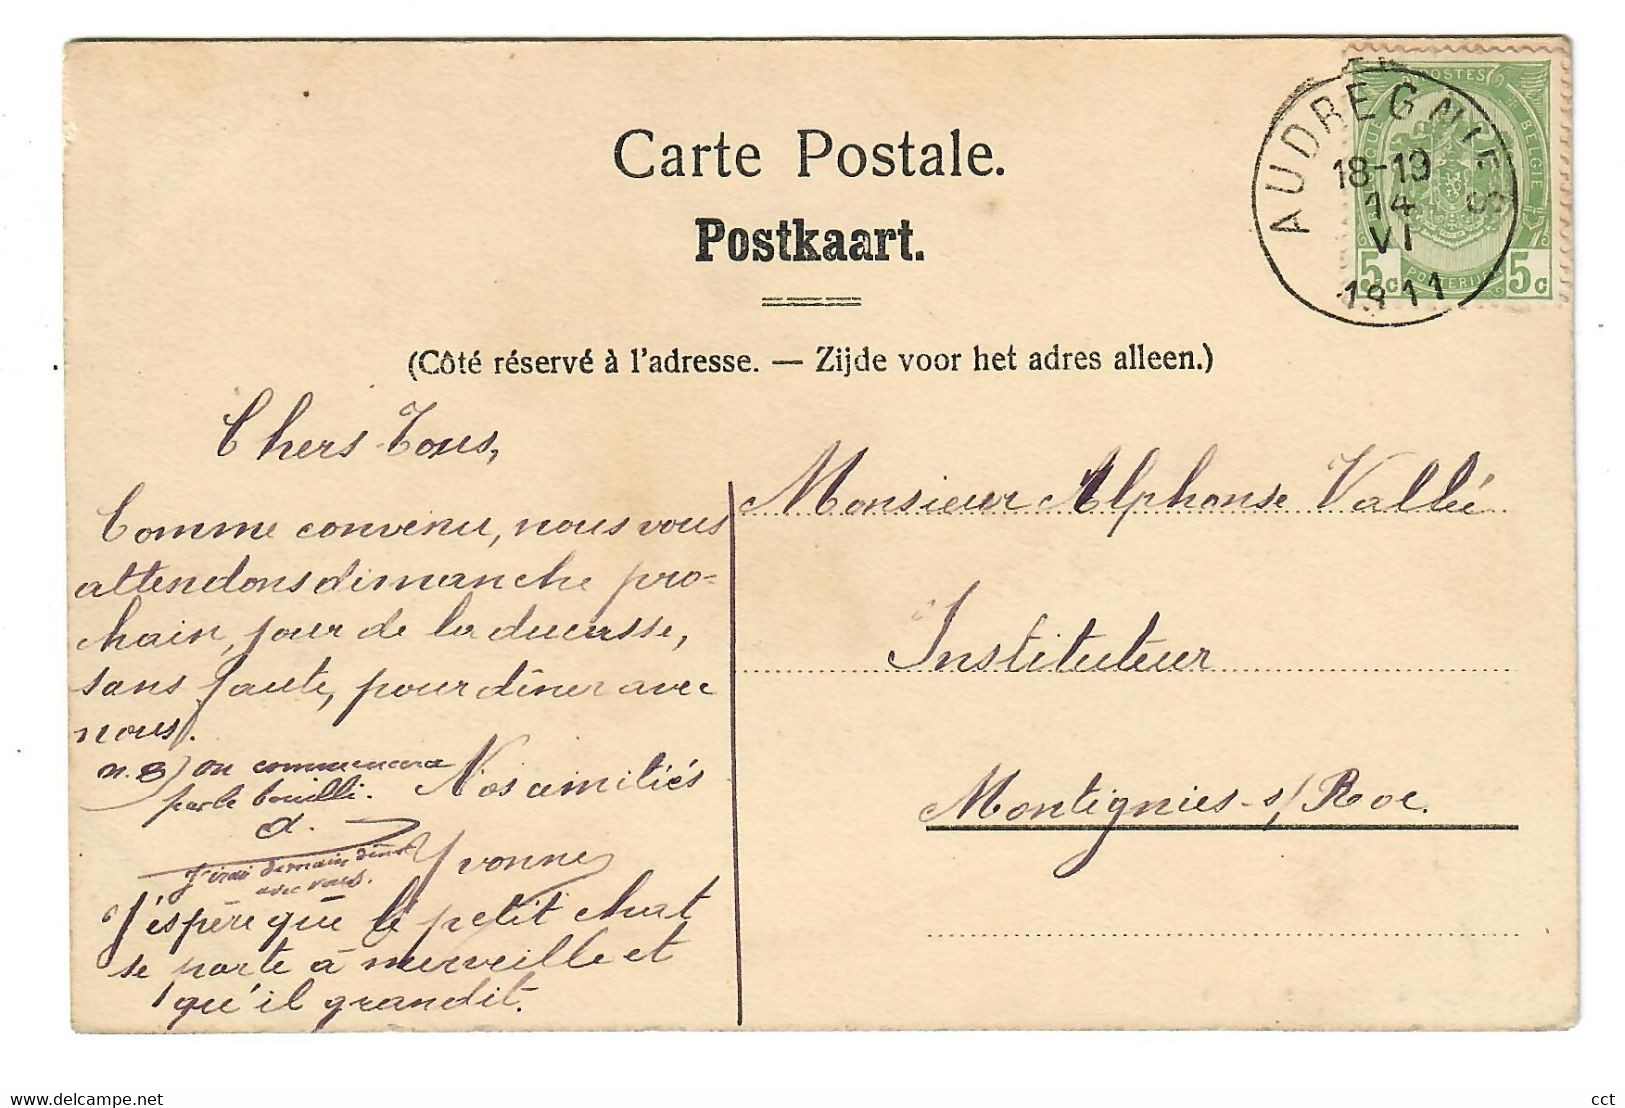 Carte Postale.
Postkaart.
(Côté réservé à l'adresse. — Zijde voor het adres alleen.)
AUDREGNIES
18-19
14
VI
1911
POSTES
BELGIE
5c 5c
Chers Tous,
Comme convenu, nous vous
attendons dimanche pro=
chain, jour de la ducasse,
sans faute, pour dîner avec
nous.
n.B) on commencera
par le bouilli.
Nos amitiés
d.
Yvonne
J'irai demain dîner
avec vous.
J'espère que le petit chat
se porte à merveille et
qu'il grandit.
Monsieur Alphonse Vallée
Instituteur
Montignies-s/Roc.
delcampe.net
cct